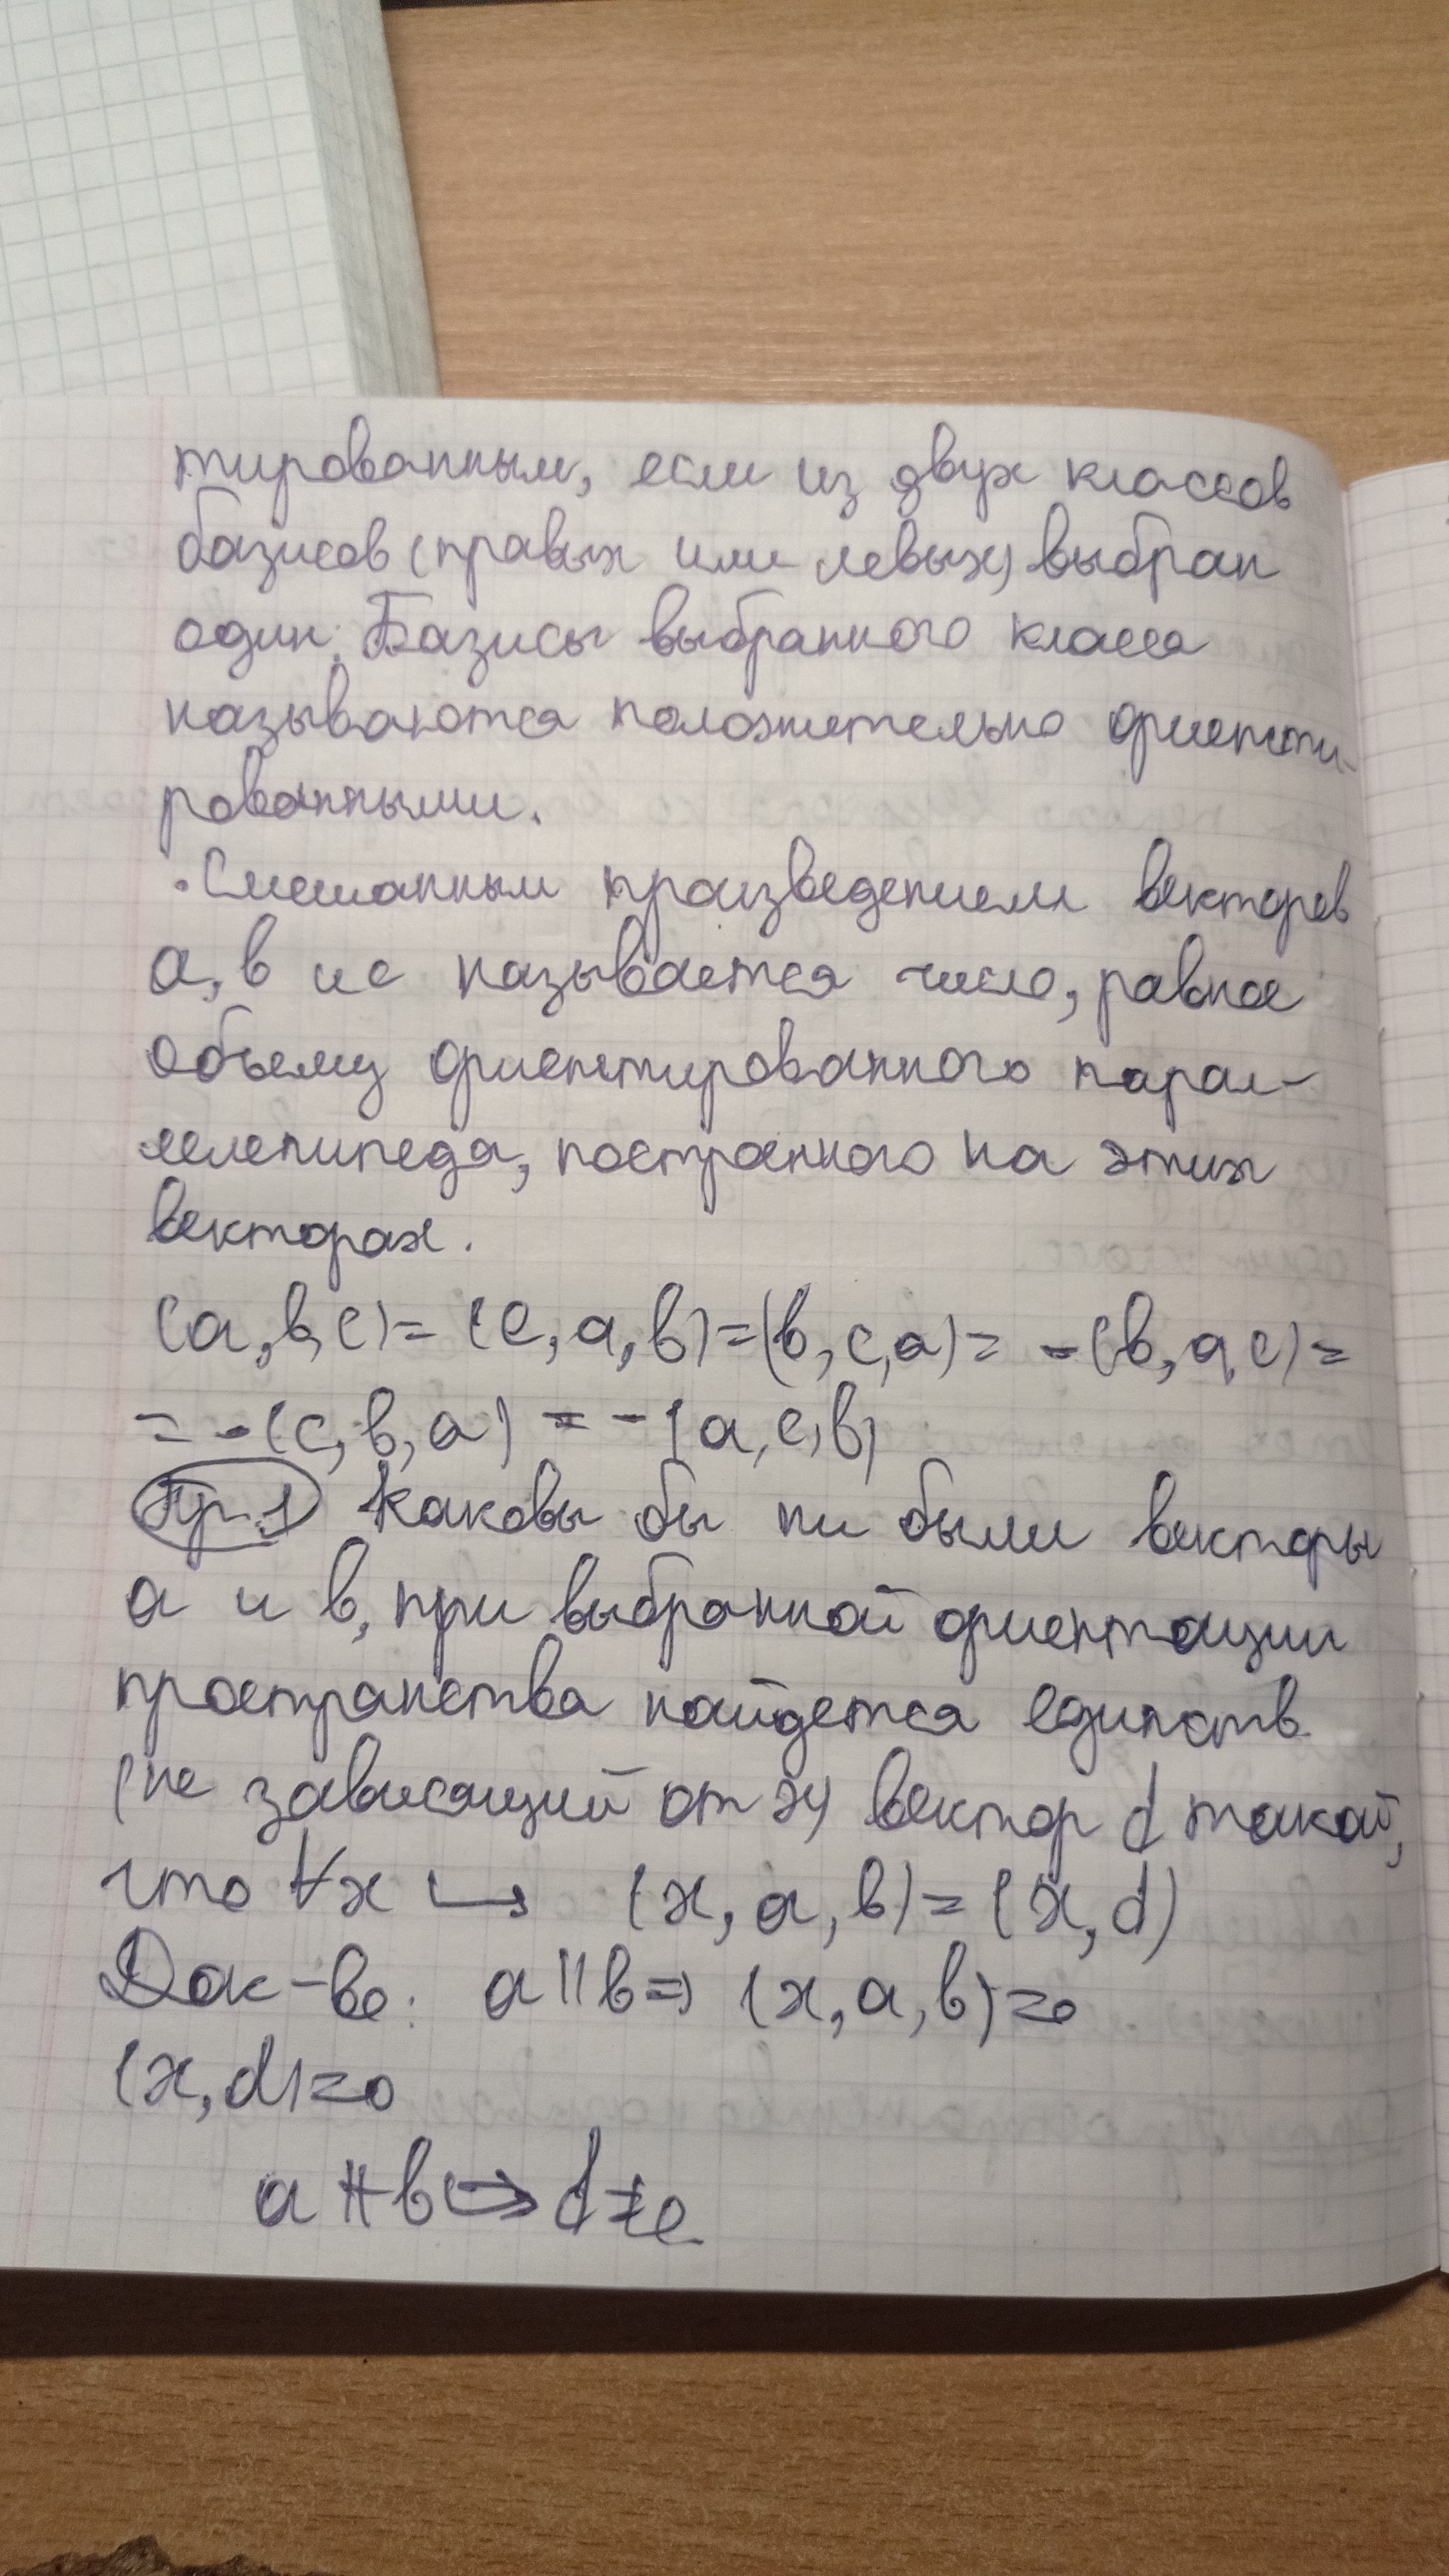 тированным, если из двух классов
базисов (правых или левых) выбран
один. Базисы выбранного класса
называются положительно ориенти-
рованными.
· Смешанным произведением векторов
a, b и c называется число, равное
объему ориентированного парал-
лелепипеда, построенного на этих
векторах.
(a, b, c) = (c, a, b) = (b, c, a) = -(b, a, c) =
= -(c, b, a) = -(a, c, b)
Пр. 1 Каковы бы ни были векторы
a и b, при выбранной ориентации
пространства найдется единств.
(не зависящий от x) вектор d такой,
что ∀x ↪ (x, a, b) = (x, d)
Док-во: a || b ⇒ (x, a, b) = 0
(x, d) = 0
a ∦ b ↪ d ≠ 0